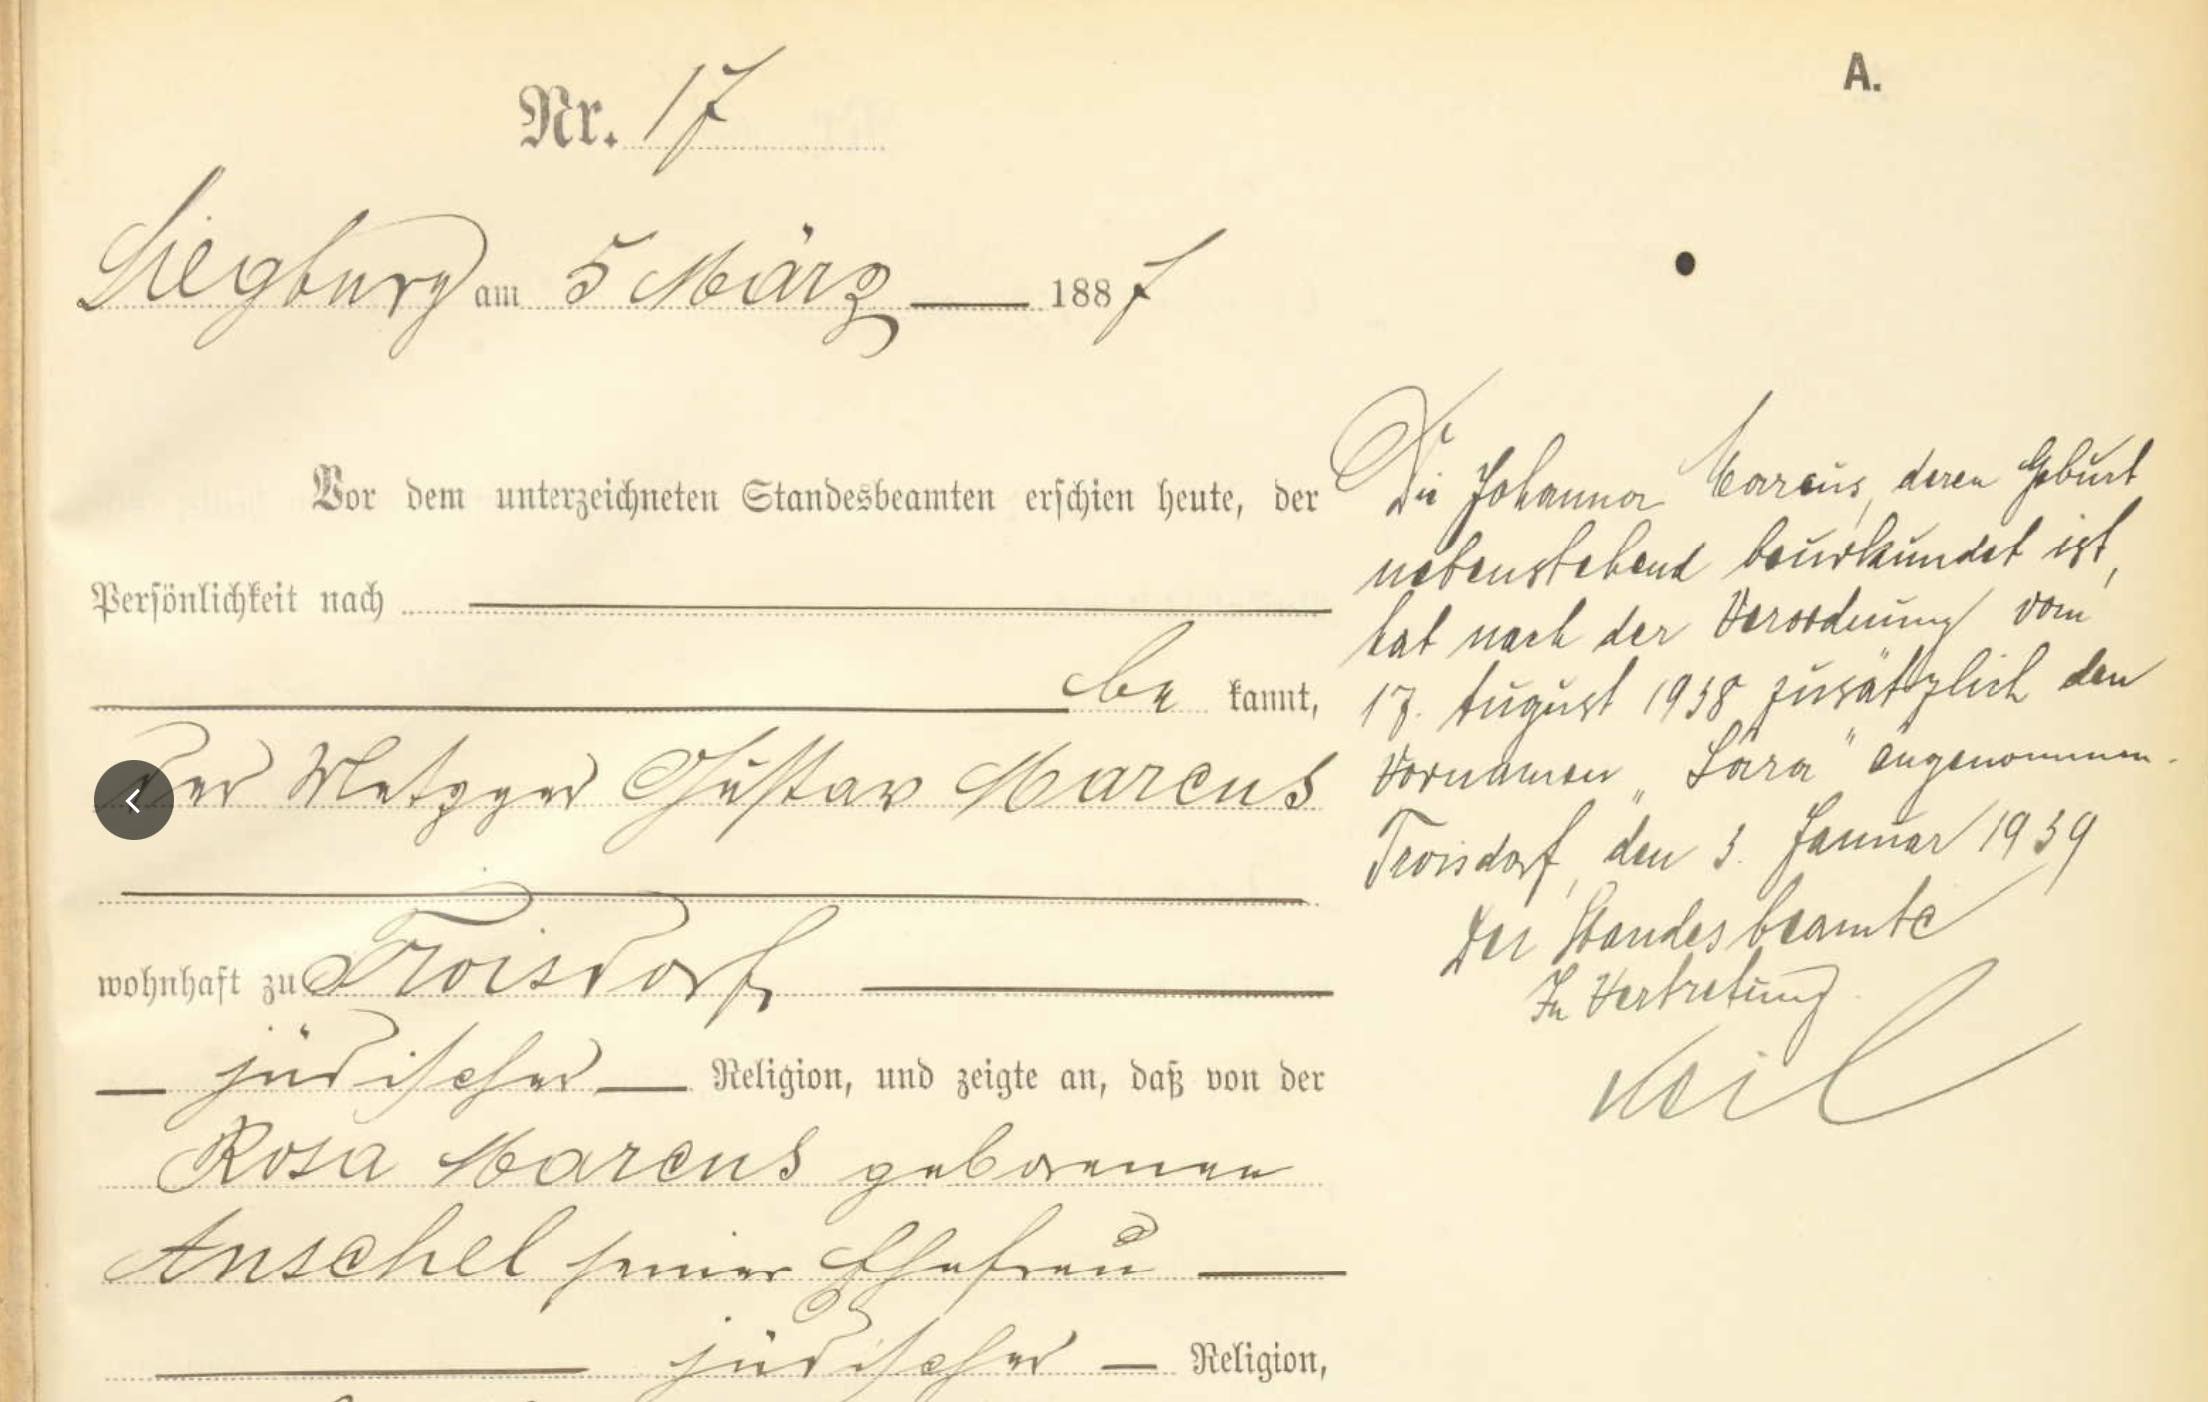 A.
Nr. 17
Siegburg am 5 März 1887
Vor dem unterzeichneten Standesbeamten erschien heute, der
Persönlichkeit nach
be kannt,
der Metzger Gustav Marcus
wohnhaft zu Troisdorf
jüdischer Religion, und zeigte an, daß von der
Rosa Marcus geborenen
Anschel seiner Ehefrau
jüdischer Religion,
Die Johanna Marcus, deren Geburt
nebenstehend beurkundet ist,
hat nach der Verordnung vom
17. August 1938 zusätzlich den
Vornamen „Sara" angenommen.
Troisdorf, den 3. Januar 1939
Der Standesbeamte
In Vertretung